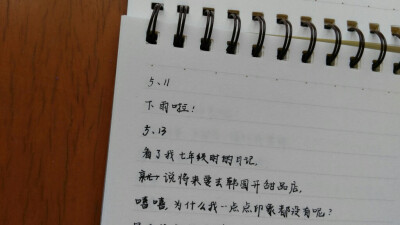 5.11
下雨啦!
5.13
看了我七年级时的日记.
说将来要去韩国开甜品店.
嘻嘻 为什么我一点点印象都没有呢?